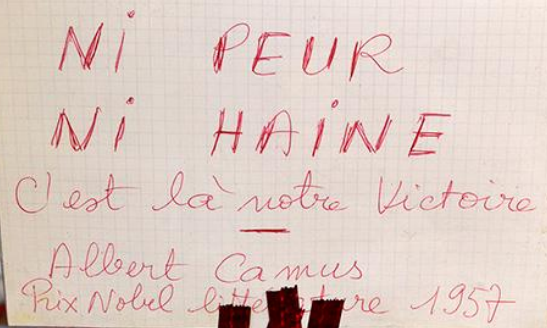 Ni PEUR
Ni HAiNE
C'est là notre Victoire
Albert Camus
Prix Nobel littérature 1957